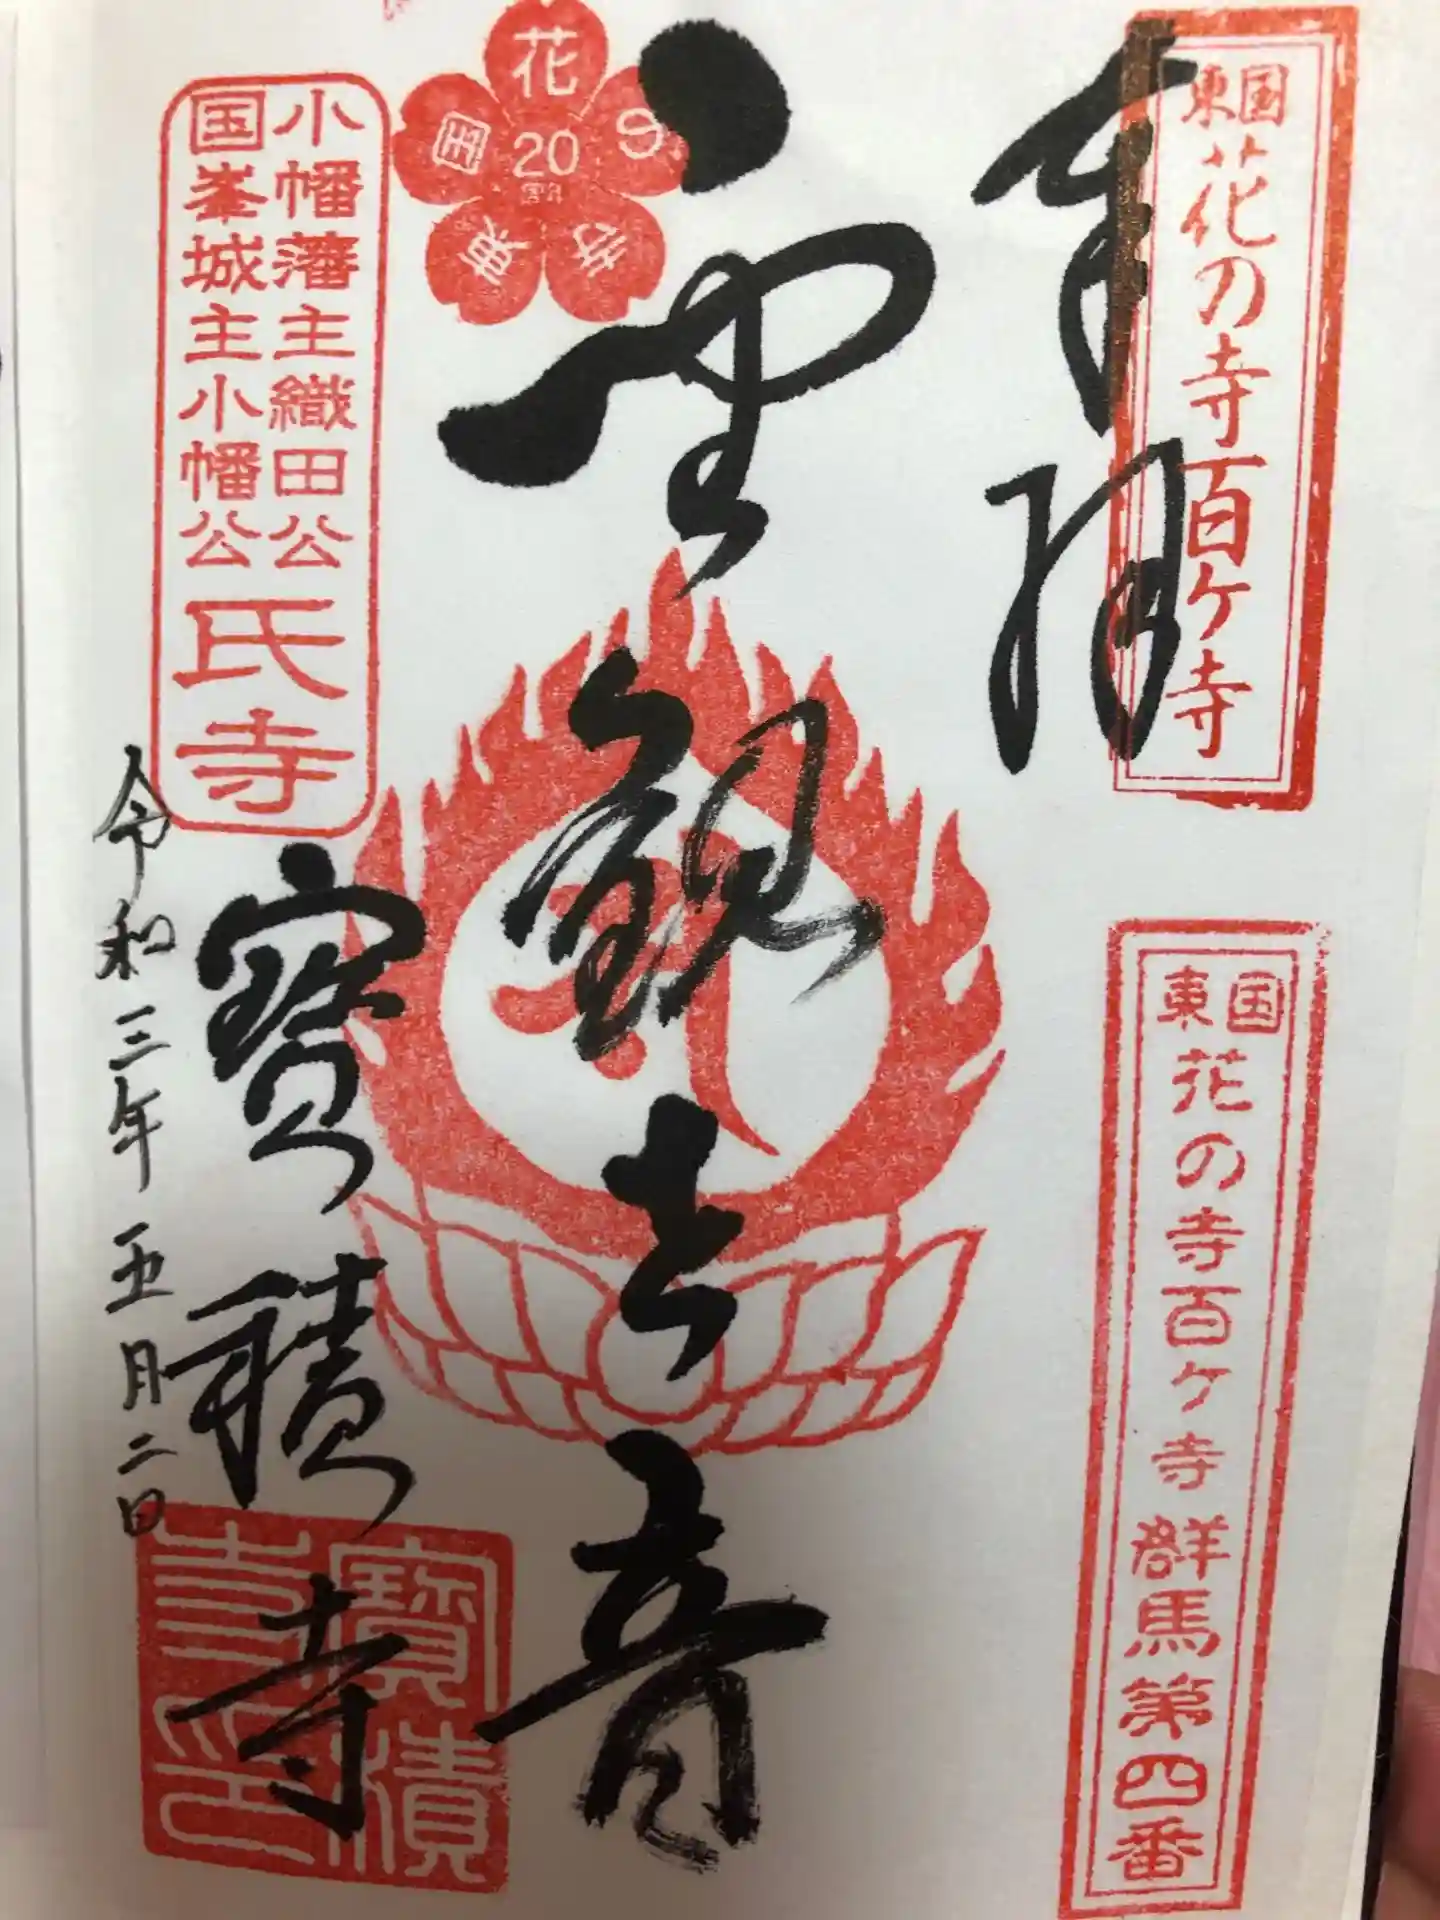 奉拝
東国
花の寺百ケ寺
東国
花の寺百ケ寺 群馬第四番
聖観世音
花の寺
東国
20
周年
小幡藩主織田公
国峯城主小幡公
氏寺
寳積寺
令和三年五月二日
寳積
寺印